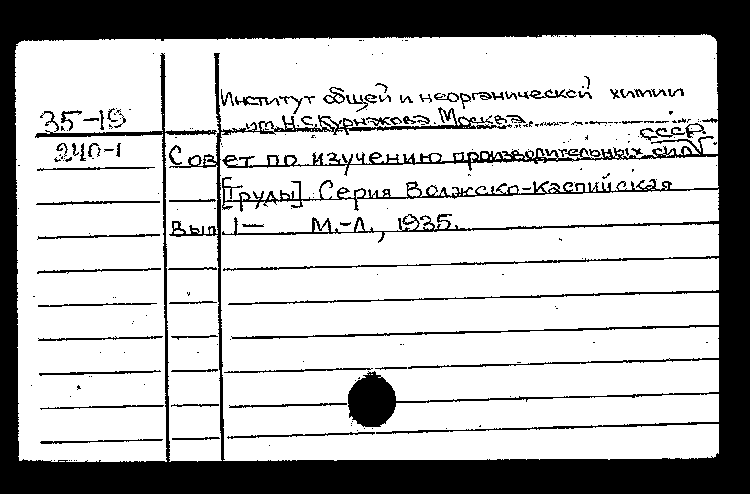 Институт общей и неорганической химии
35-19 им. Н.С. Курнакова. Москва.
СССР.
240-1 Совет по изучению производительных сил
[Труды]. Серия Волжско-Каспийская
Вып. 1— М.-Л., 1935.